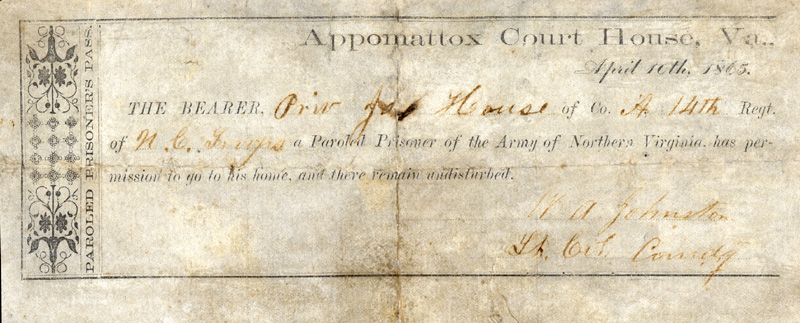 PAROLED PRISONER'S PASS.
Appomattox Court House, Va.,
April 10th, 1865.
THE BEARER, Priv Jas House of Co. A 14th Regt.
of N. C. Troops a Paroled Prisoner of the Army of Northern Virginia, has per-
mission to go to his home, and there remain undisturbed.
W A Johnston
Lt. Col Comdg